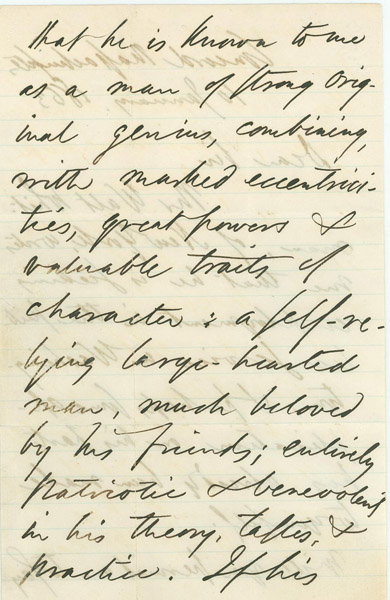 that he is known to me
as a man of strong orig-
inal genius, combining,
with marked eccentrici-
ties, great powers &
valuable traits of
character: a self-re-
lying large-hearted
man, much beloved
by his friends; entirely
patriotic & benevolent
in his theory, tastes, &
practice. If his